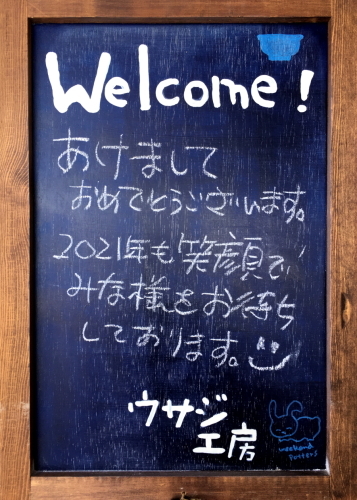 Welcome!
あけまして
おめでとうございます。
2021年も笑顔で
みな様をお待ち
しております。
ウサジ
工房
weekend
potters